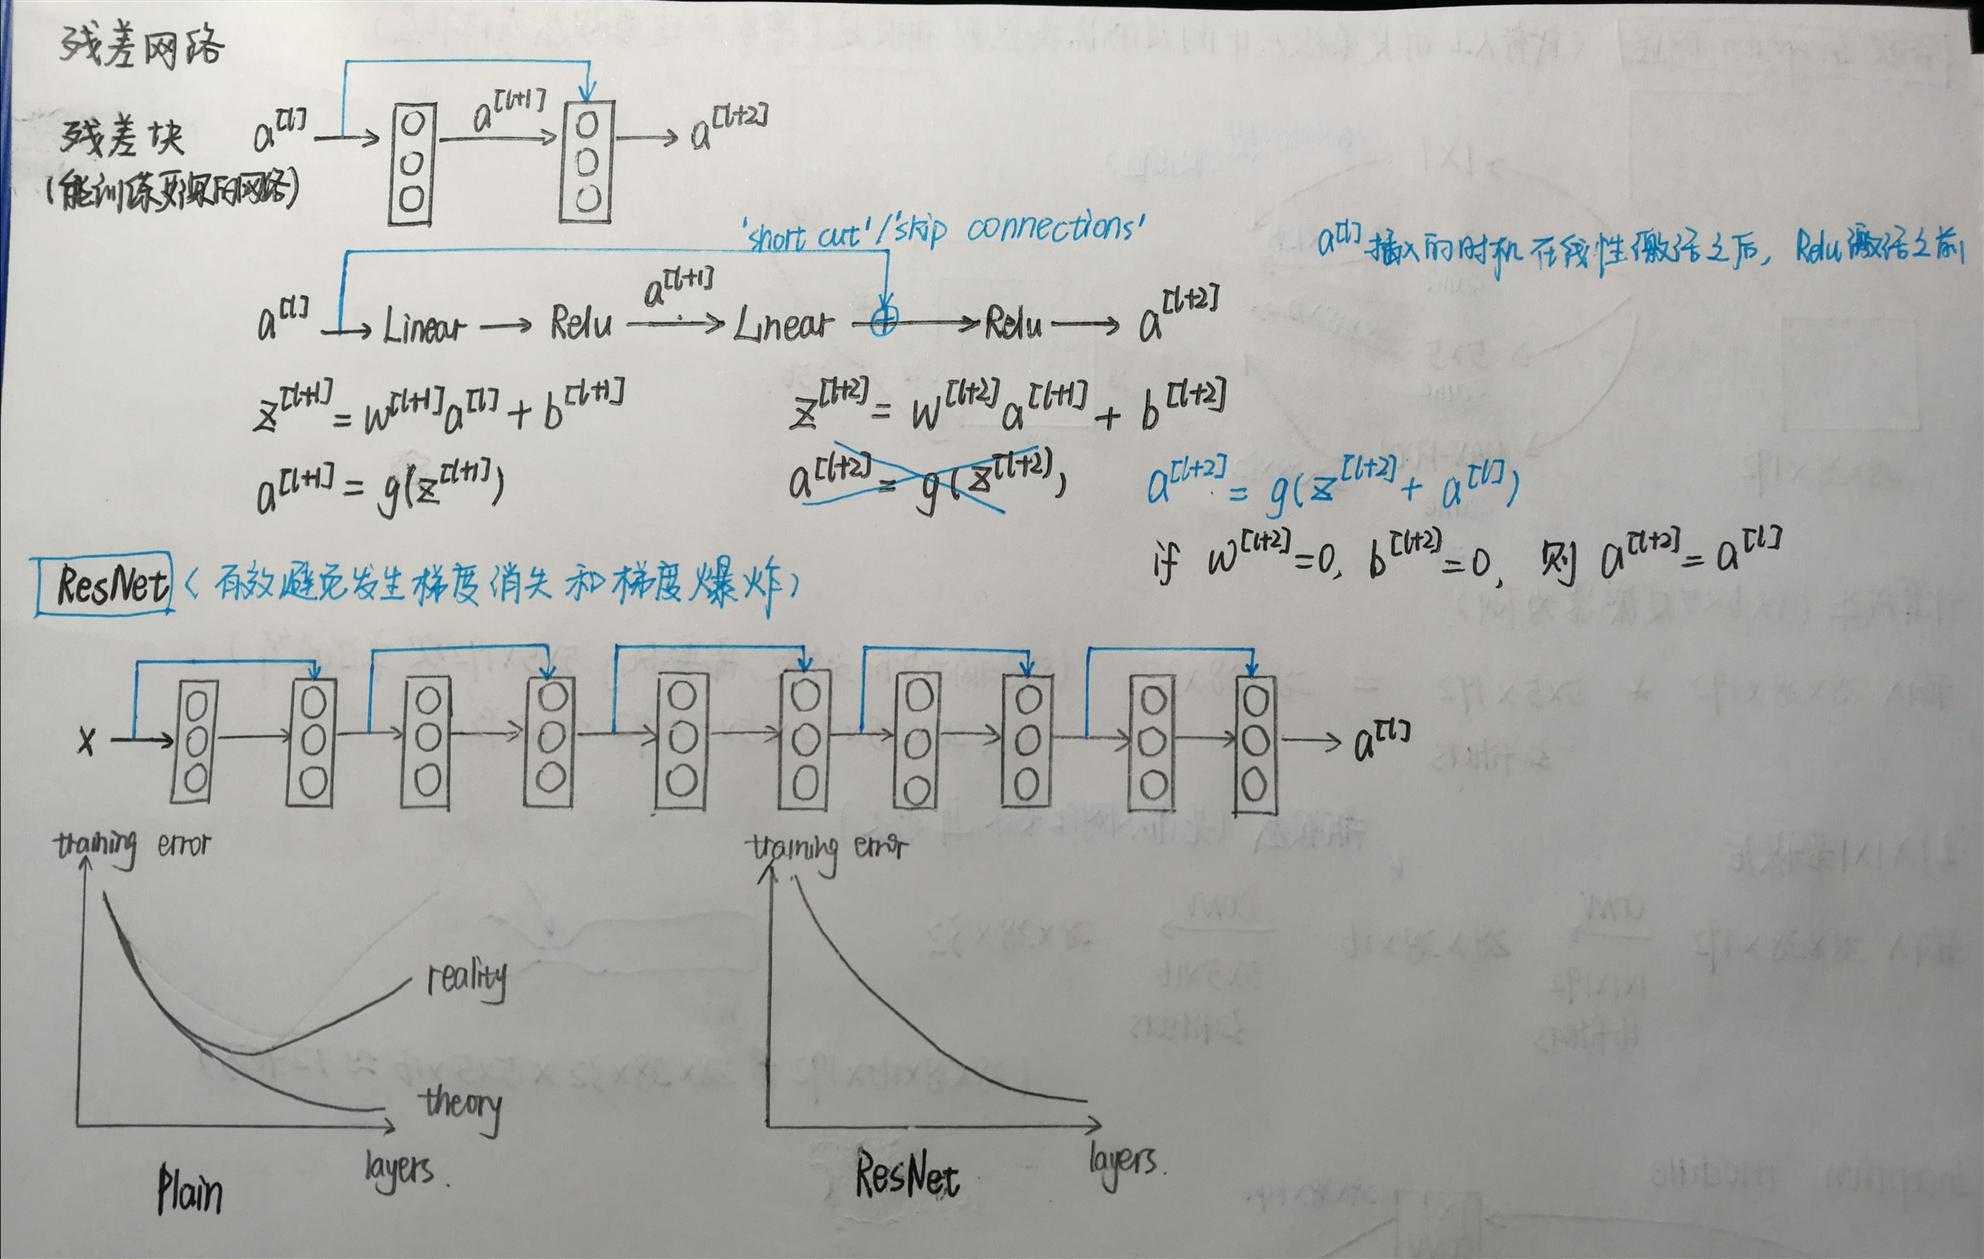 残差网络
残差块 a^[l] a^[l+1] a^[l+2]
(能训练更深的网络)
'short cut'/'skip connections'
a^[l] 插入的时机在线性激活之后，Relu激活之前
a^[l] → Linear → Relu a^[l+1] → Linear ⊕ → Relu → a^[l+2]
z^[l+1] = w^[l+1] a^[l] + b^[l+1] z^[l+2] = w^[l+2] a^[l+1] + b^[l+2]
a^[l+1] = g(z^[l+1]) a^[l+2] = g(z^[l+2]), a^[l+2] = g(z^[l+2] + a^[l])
if w^[l+2]=0, b^[l+2]=0, 则 a^[l+2] = a^[l]
ResNet (有效避免发生梯度消失和梯度爆炸)
x a^[l]
training error training error
reality
theory
layers. layers.
Plain ResNet